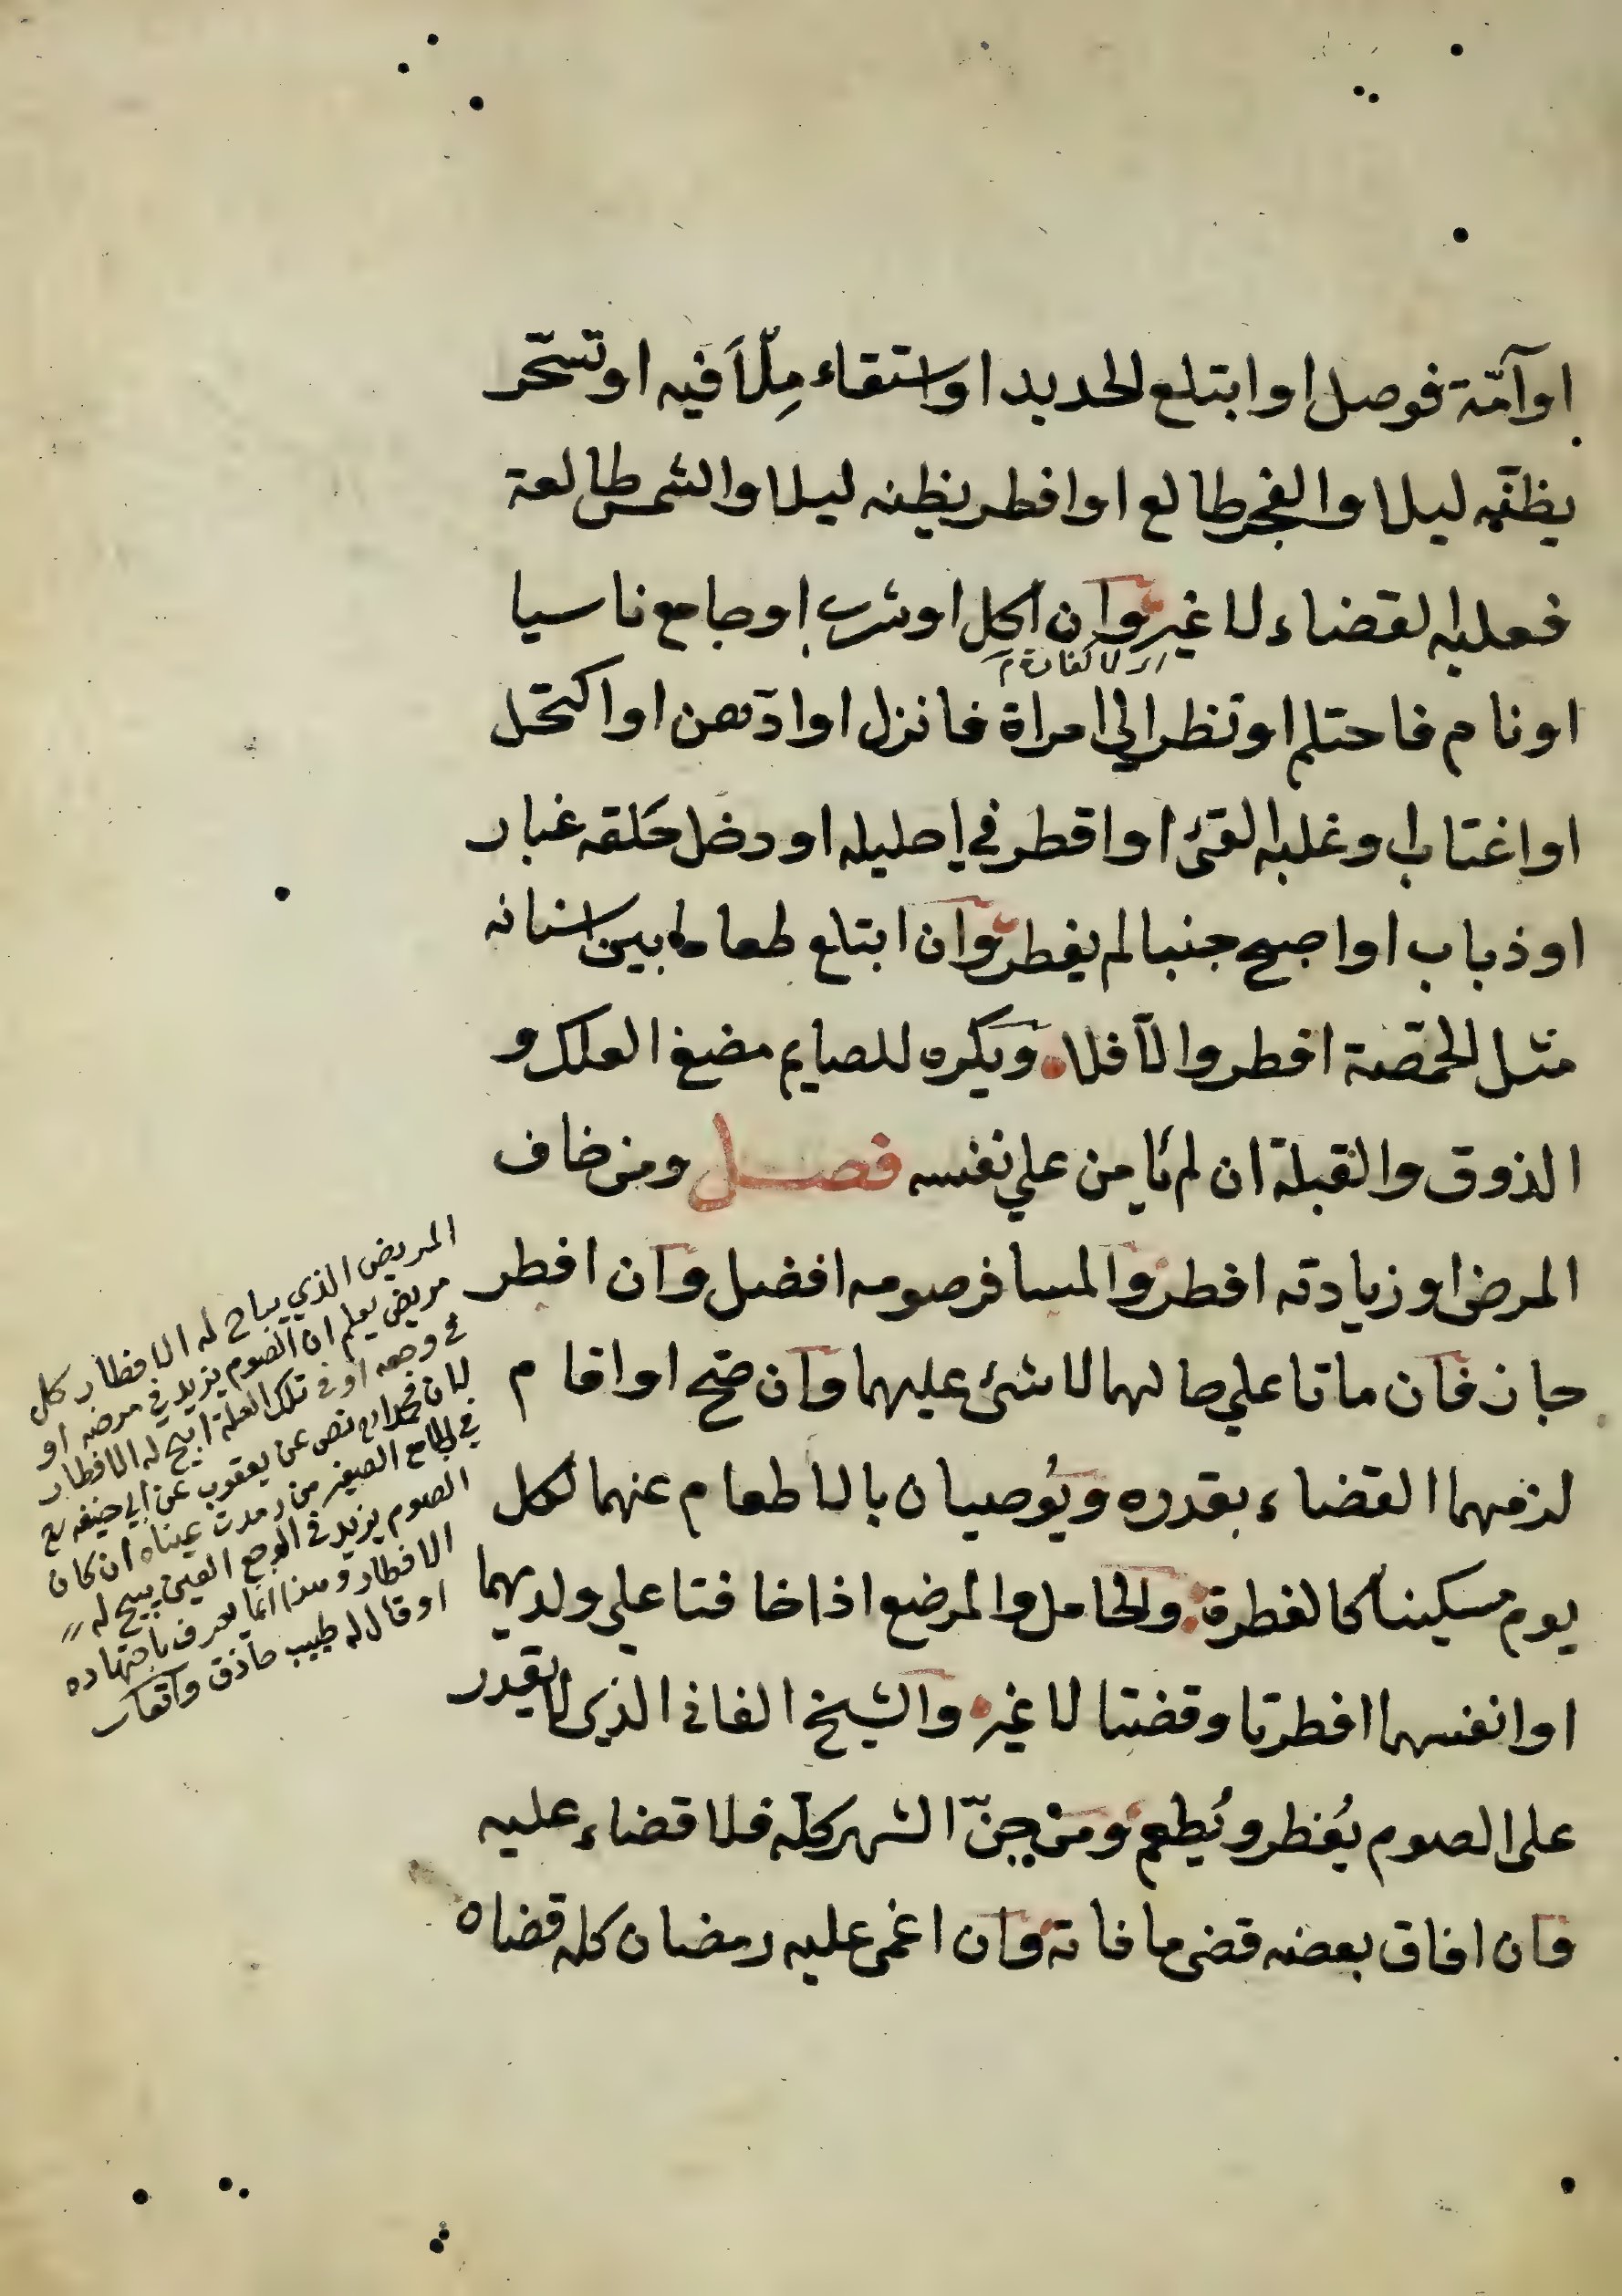 او آمّة فوصل او ابتلع الحديد او استقاء مِلْأَ فيه او تسحّر
يظنّه ليلا والفجر طالع او افطر يظنه ليلا والشمس طالعة
فعليه القضاء لا غير وان اكل او شرب او جامع ناسيا
اي لا كفارة م
او نام فاحتلم او نظر الي امراة فانزل او ادّهن او اكتحل
او اغتاب او غلبه القئ او اقطر في احليله او دخل حَلقه غبار
او ذباب او اصبح جنبا لم يفطر وان ابتلع طعاما بين اسنانه
مثل الحمّصة افطر والّا فلا ويكره للصايم مضغ العلك و
الذوق والقبلة ان لم يامن علي نفسه فصل ومن خاف
المرض او زيادته افطر والمسافر صومه افضل وان افطر
جاز فان ماتا علي حالهما لا شئ عليهما وان صح او اقام
لزمهما القضاء بقدره ويُوصيان بالاطعام عنهما لكل
يوم مسكينا كالفطرة والحامل والمرضع اذا خافتا علي ولديهما
او انفسهما افطرتا وقضتا لا غير والشيخ الفاني الذي لا يقدر
علي الصوم يُفطر ويُطعم ومن جنّ الشهر كلّه فلا قضاء عليه
فان افاق بعضه قضي ما فاته وان اغمي عليه رمضان كله قضاه
المريض الذي يباح له الافطار كل
مريض يعلم ان الصوم يزيد في مرضه او
في وجعه او في تلك العلة ابيح له الافطار
لان محمدا رح نص عن يعقوب عن ابي حنيفه رح
في الجامع الصغير من رمدت عيناه ان كان
الصوم يزيد في الوجع العين يبيح له
الافطار وهذا انما يعرف باجتهاده
او قال له طبيب حاذق